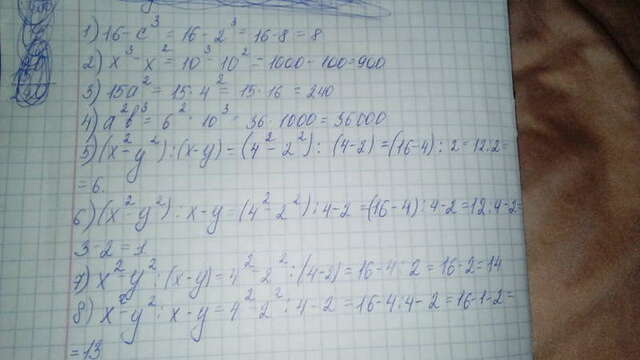 1) 16-c³ = 16-2³ = 16-8 = 8
2) x³-x² = 10³-10² = 1000-100=900
3) 15a² = 15·4² = 15·16 = 240
4) a²b³ = 6²·10³ = 36·1000 = 36000
5) (x²-y²):(x-y) = (4²-2²):(4-2) = (16-4):2=12:2=
=6.
6) (x²-y²):x-y = (4²-2²):4-2 =(16-4):4-2=12:4-2=
3-2=1
7) x²-y²:(x-y) = 4²-2²:(4-2) = 16-4:2 = 16-2=14
8) x²-y²:x-y = 4²-2²:4-2 = 16-4:4-2 = 16-1-2=
=13